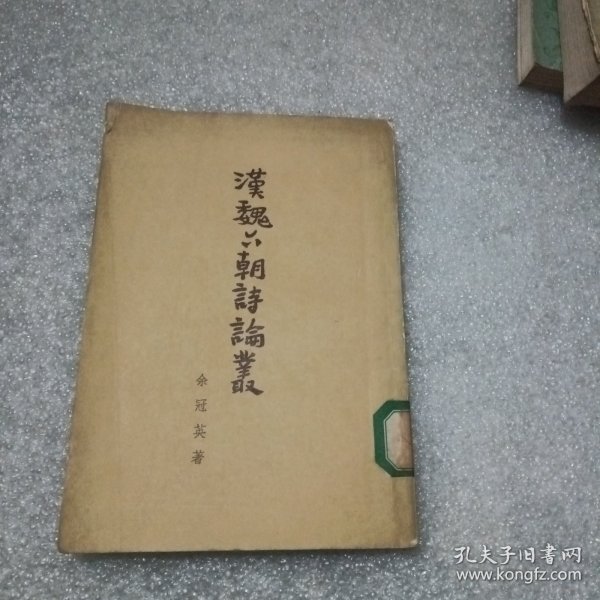 漢魏六朝詩論叢
余冠英著
孔夫子旧書网
www.kongfz.com